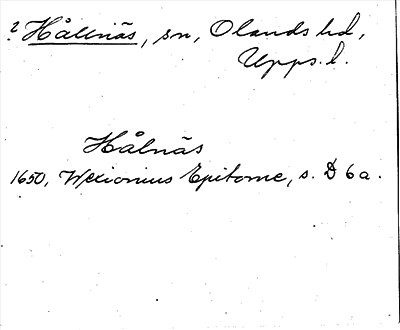 ? Hållnäs, sn, Olands hd,
Upps. l.
Hålnäs
1650, Wexionius Epitome, s. D 6 a.